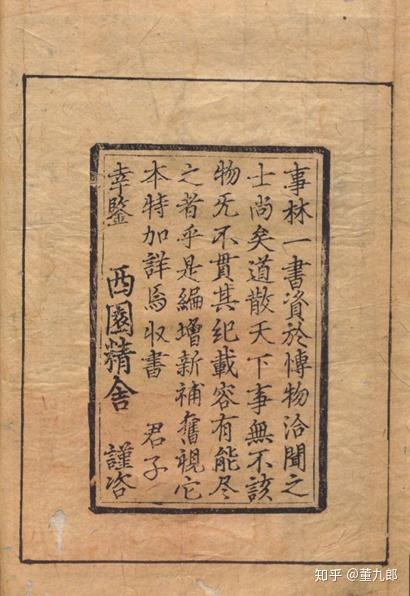 事林一書資於愽物洽聞之
士尚矣道散天下事無不該
物旡不貫其紀載容有能尽
之者乎是編增新補舊視它
本特加詳焉収書 君子
幸鑒 西園精舍 謹咨
知乎 @董九郎